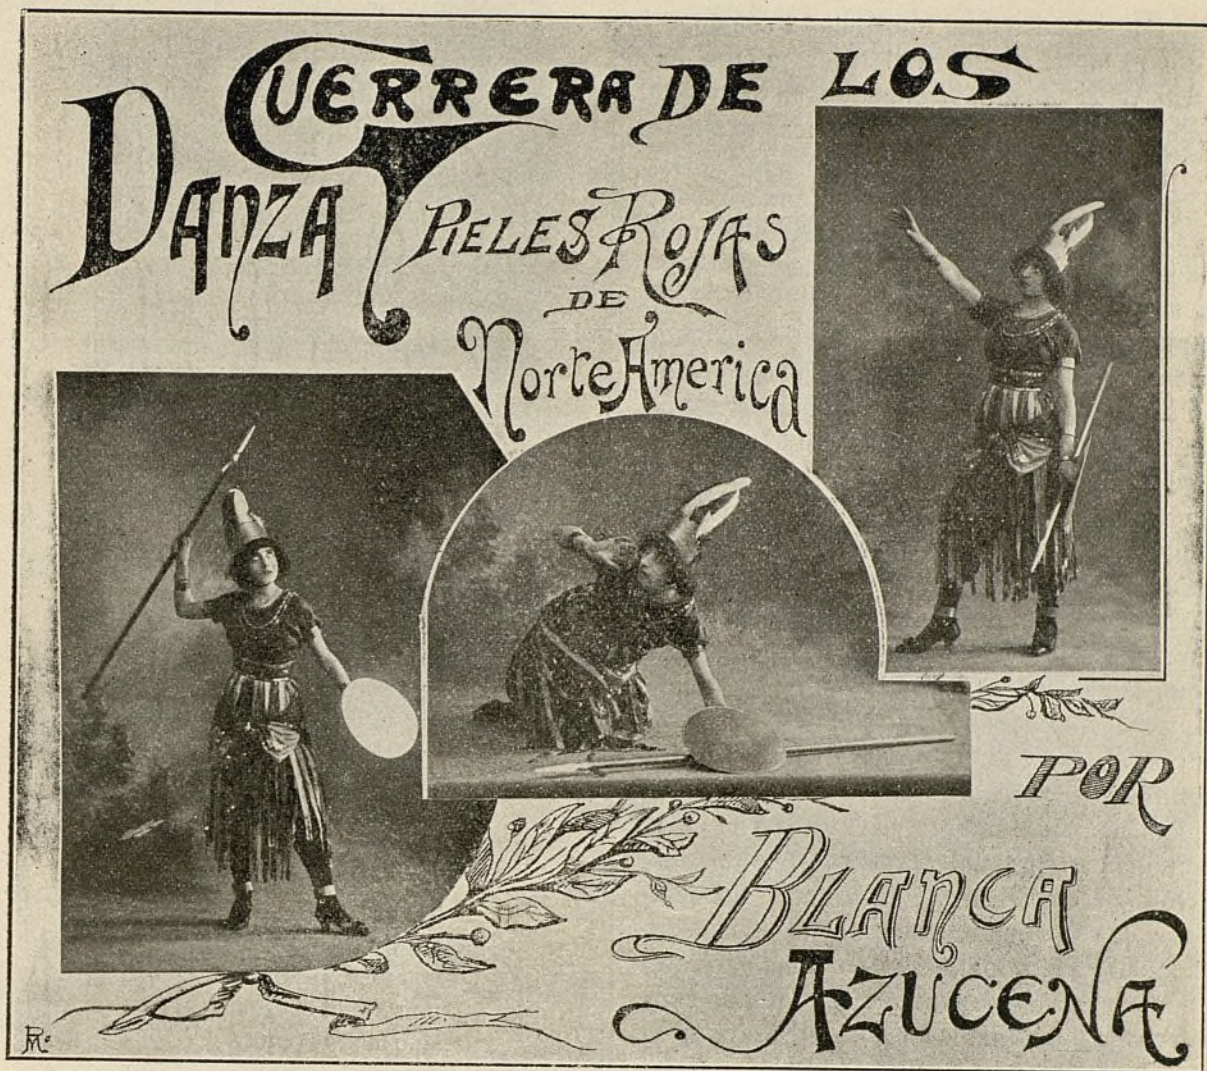 DANZA GUERRERA DE LOS
PIELES ROJAS
DE
NorteAmerica
POR
BLANCA
AZUCENA